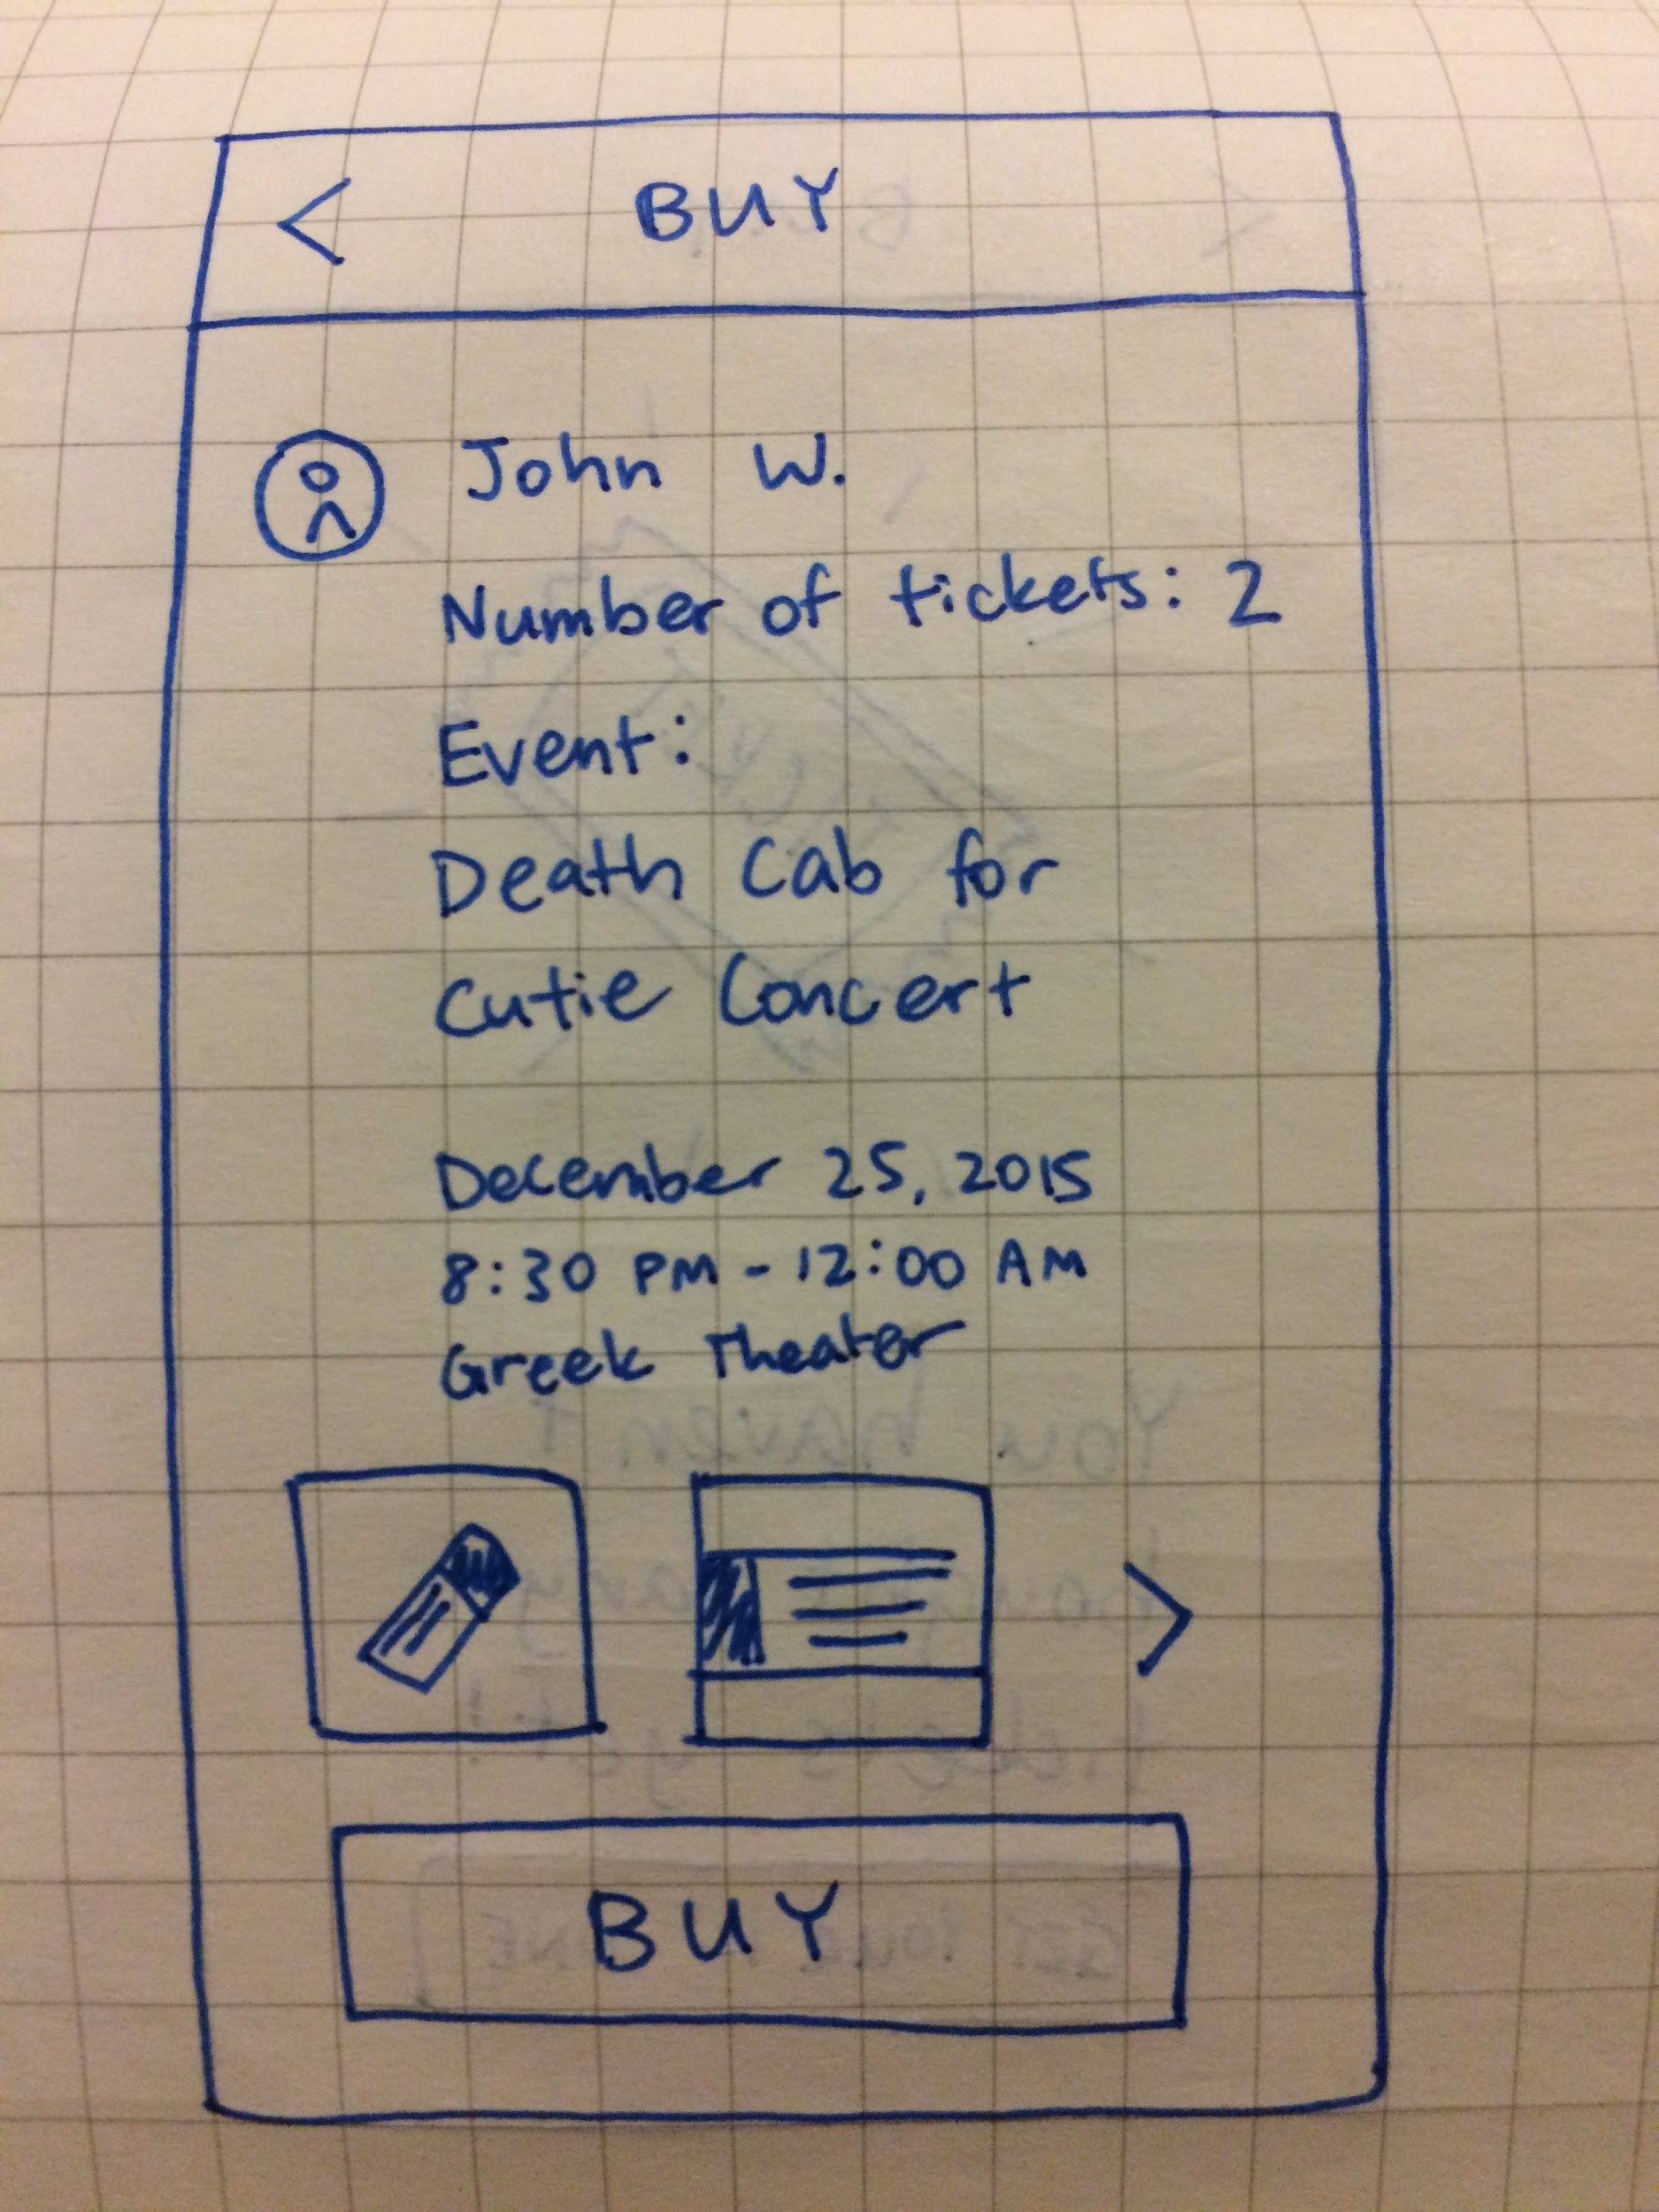 BUY
John W.
Number of tickets: 2
Event:
Death Cab for
Cutie Concert
December 25, 2015
8:30 PM - 12:00 AM
Greek Theater
You haven't
tickets yet!
BUY